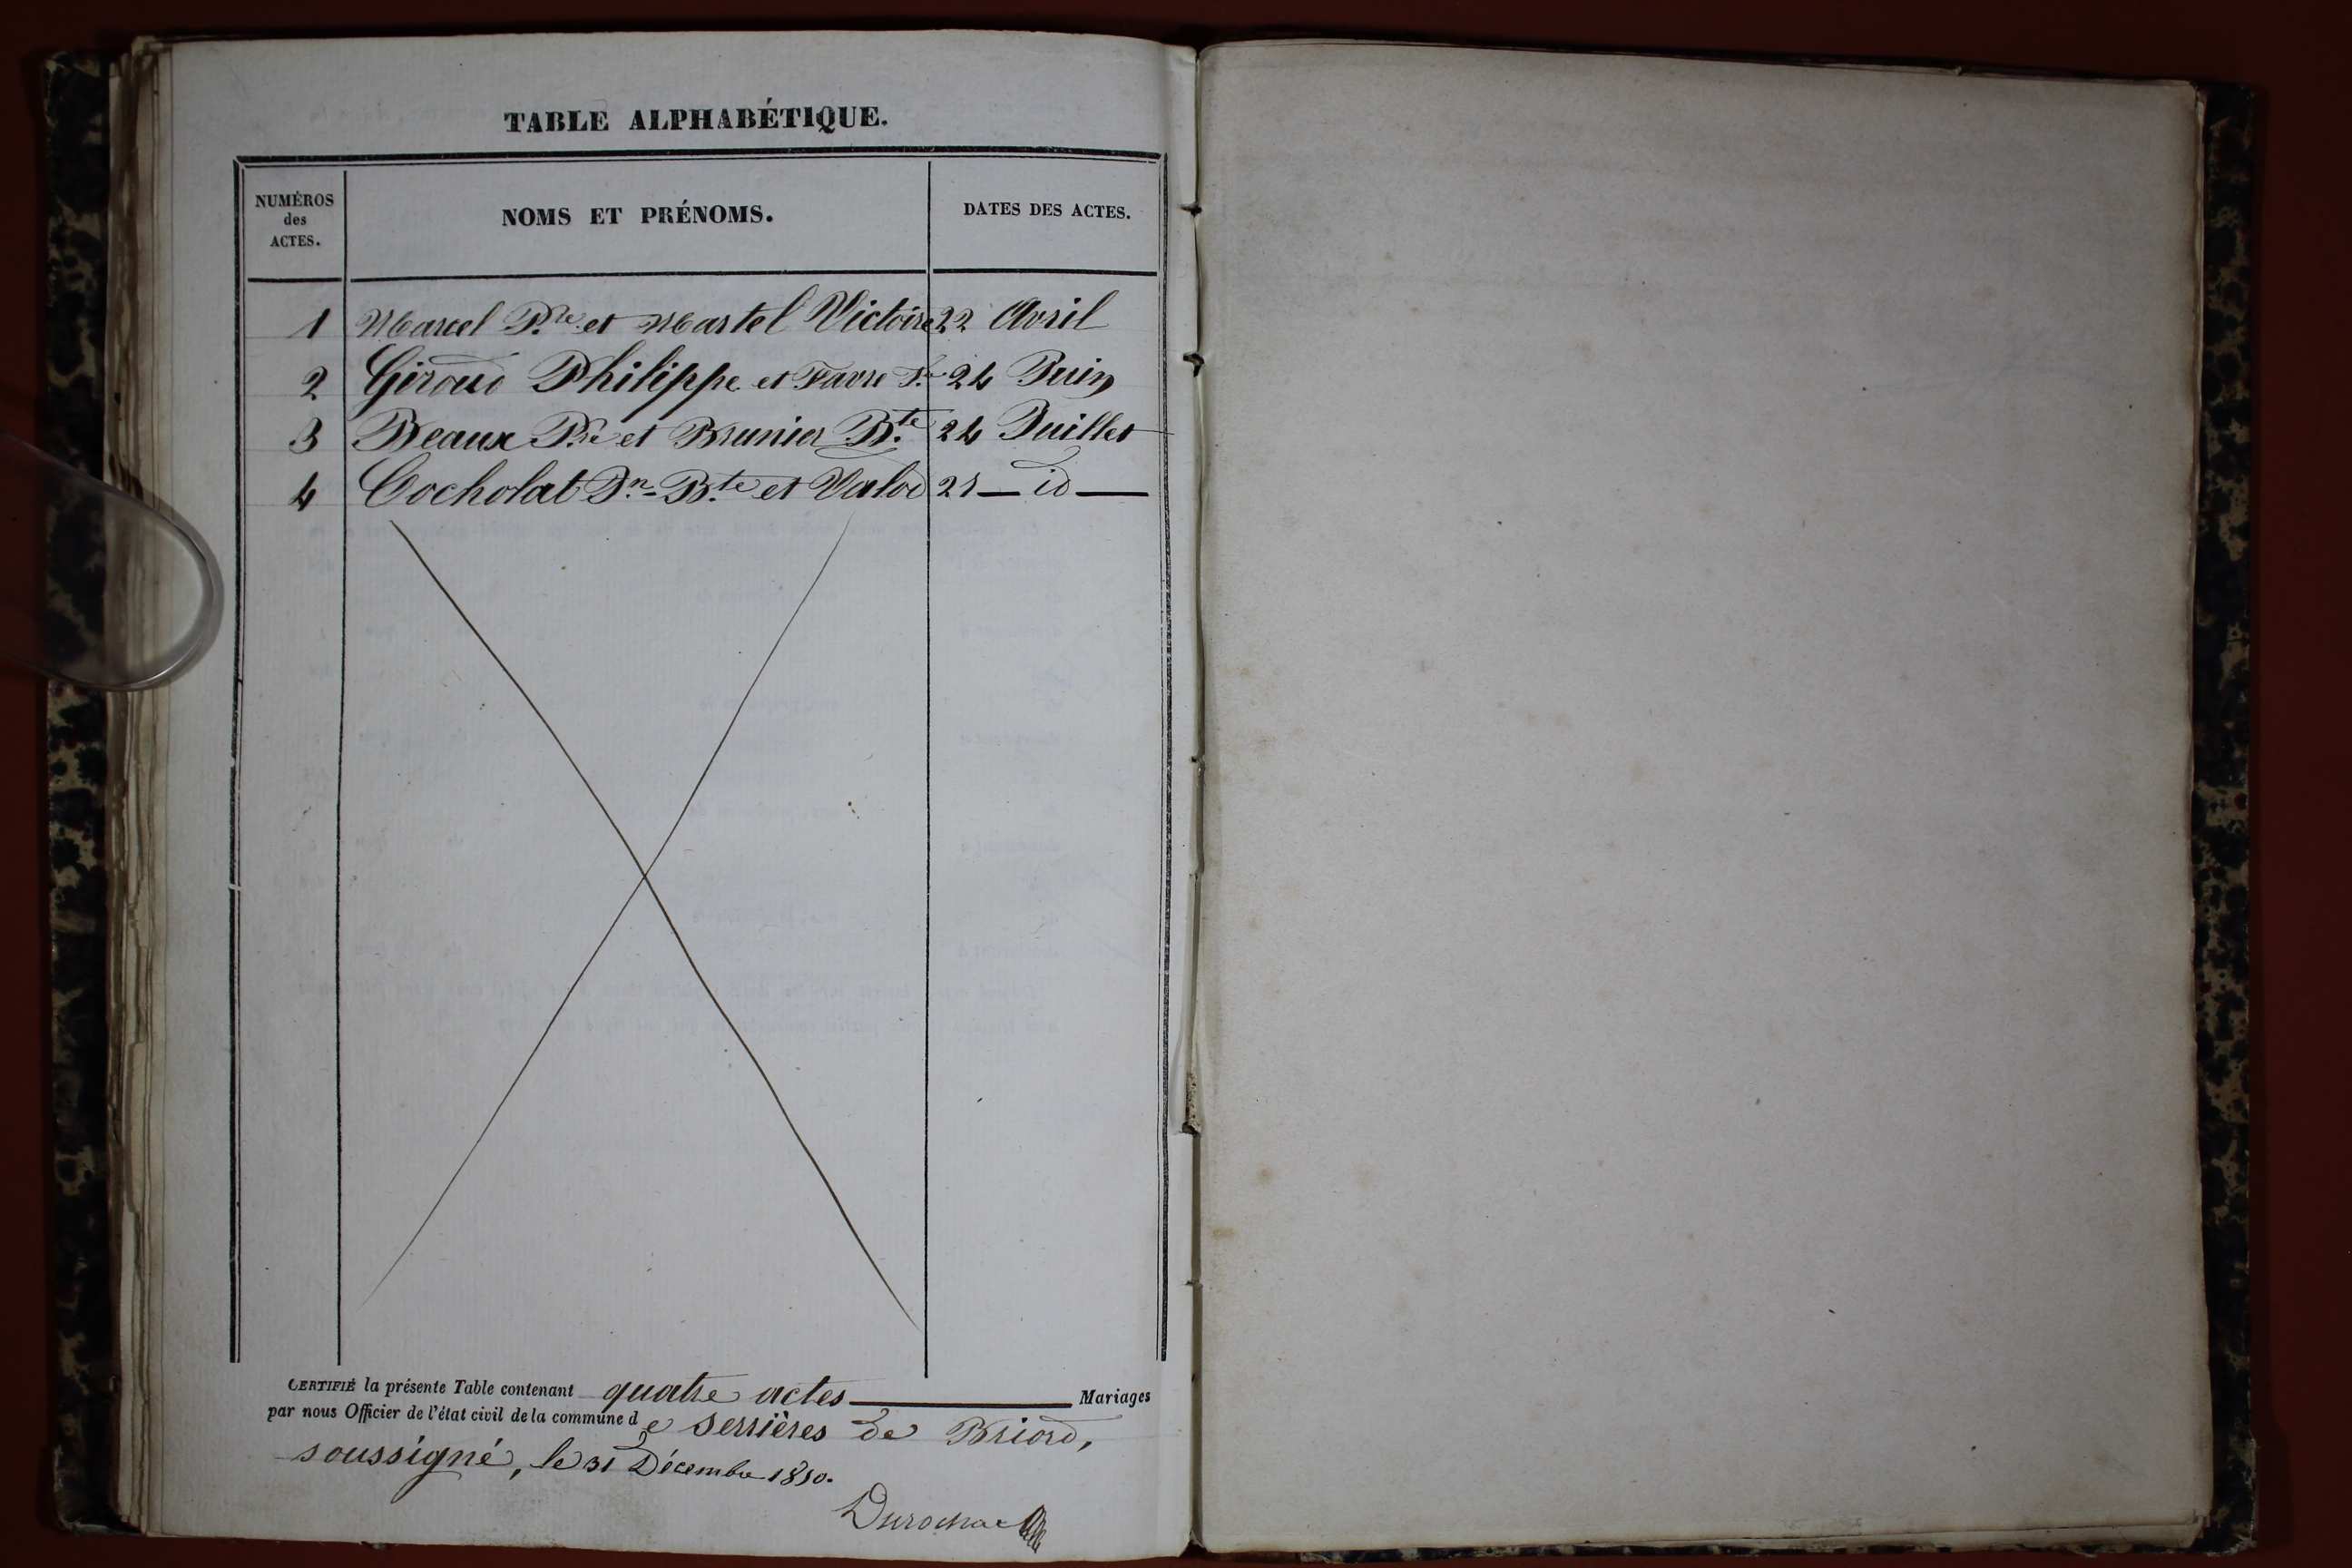 TABLE ALPHABÉTIQUE.
NUMÉROS
des
ACTES.
NOMS ET PRÉNOMS.
DATES DES ACTES.
1 Marcel P.re et Martel Victoire 22 Avril
2 Giroud Philippe et Favre 24 Juin
3 Beaux P.re et Brunier B.te 24 Juillet
4 Cocholat J.n-B.te et Valod 25 — id —
CERTIFIÉ la présente Table contenant quatre actes Mariages
par nous Officier de l'état civil de la commune de Serrières de Briord,
soussigné, le 31 Décembre 1850.